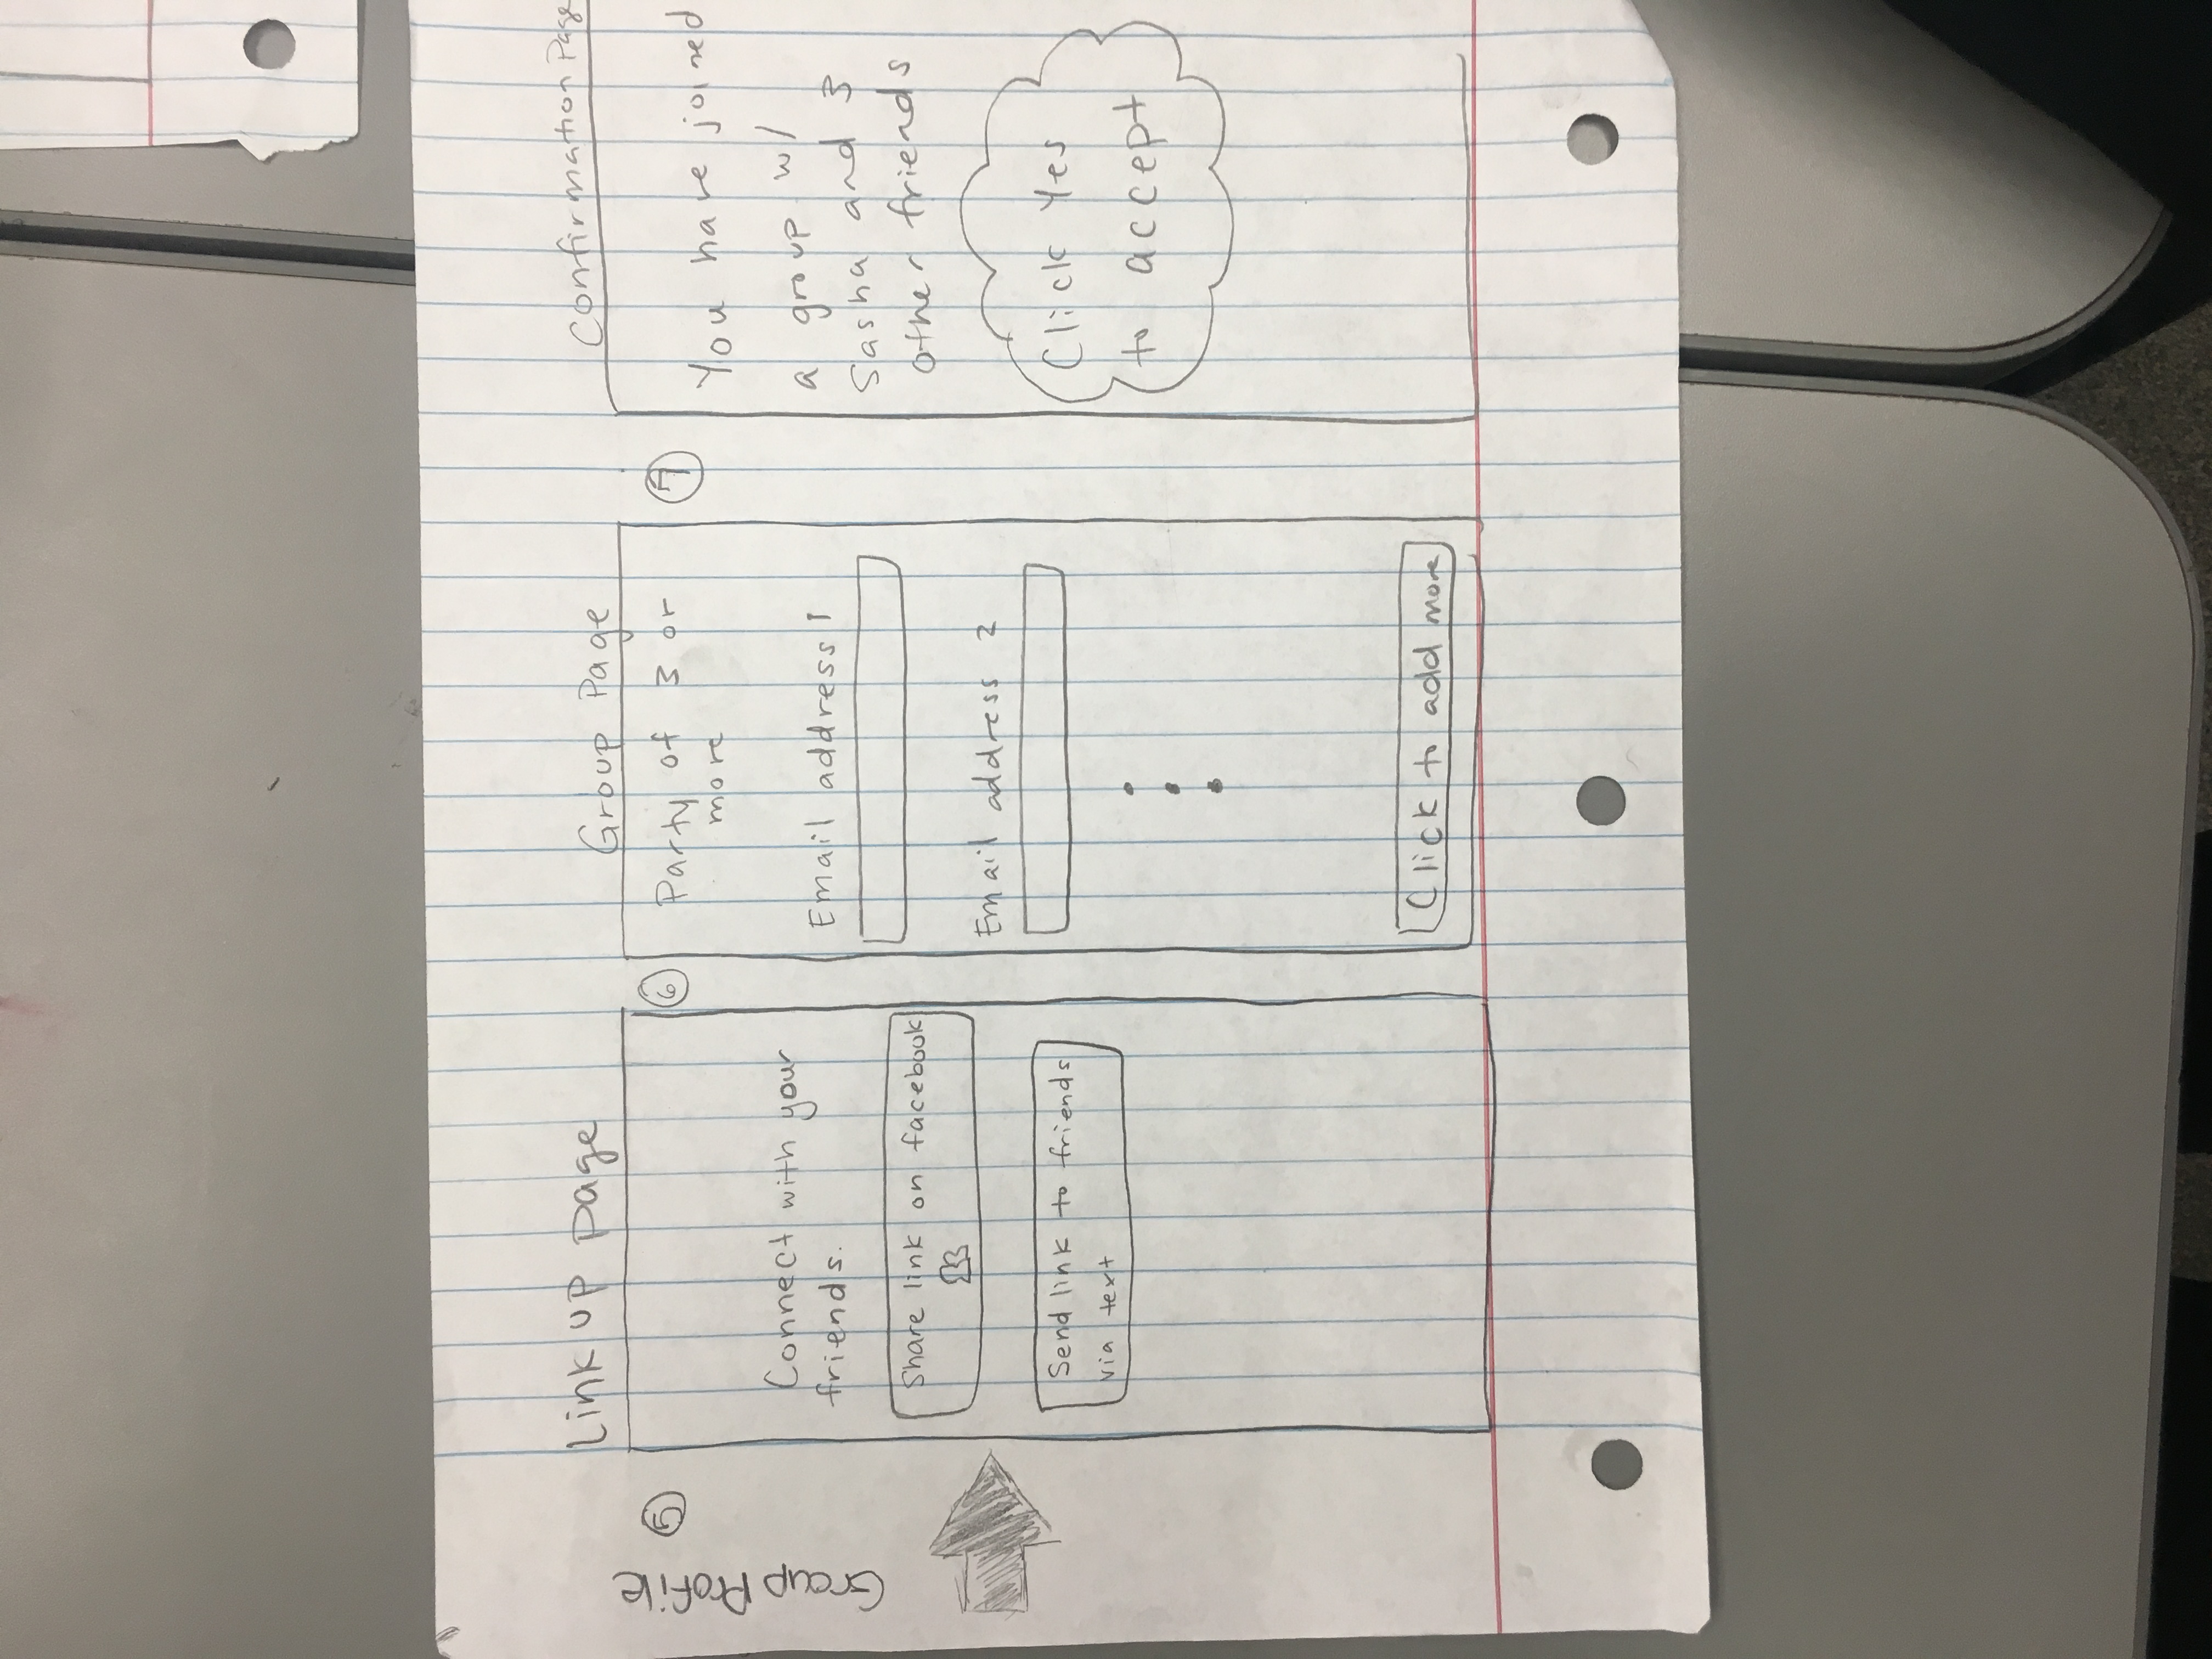 Group Profile
5
Link up page
Connect with your
friends.
Share link on facebook
Send link to friends
via text
6
Group Page
Party of 3 or
more
Email address 1
Email address 2
Click to add more
7
Confirmation Page
You have joined
a group w/
Sasha and 3
other friends
Click Yes
to accept